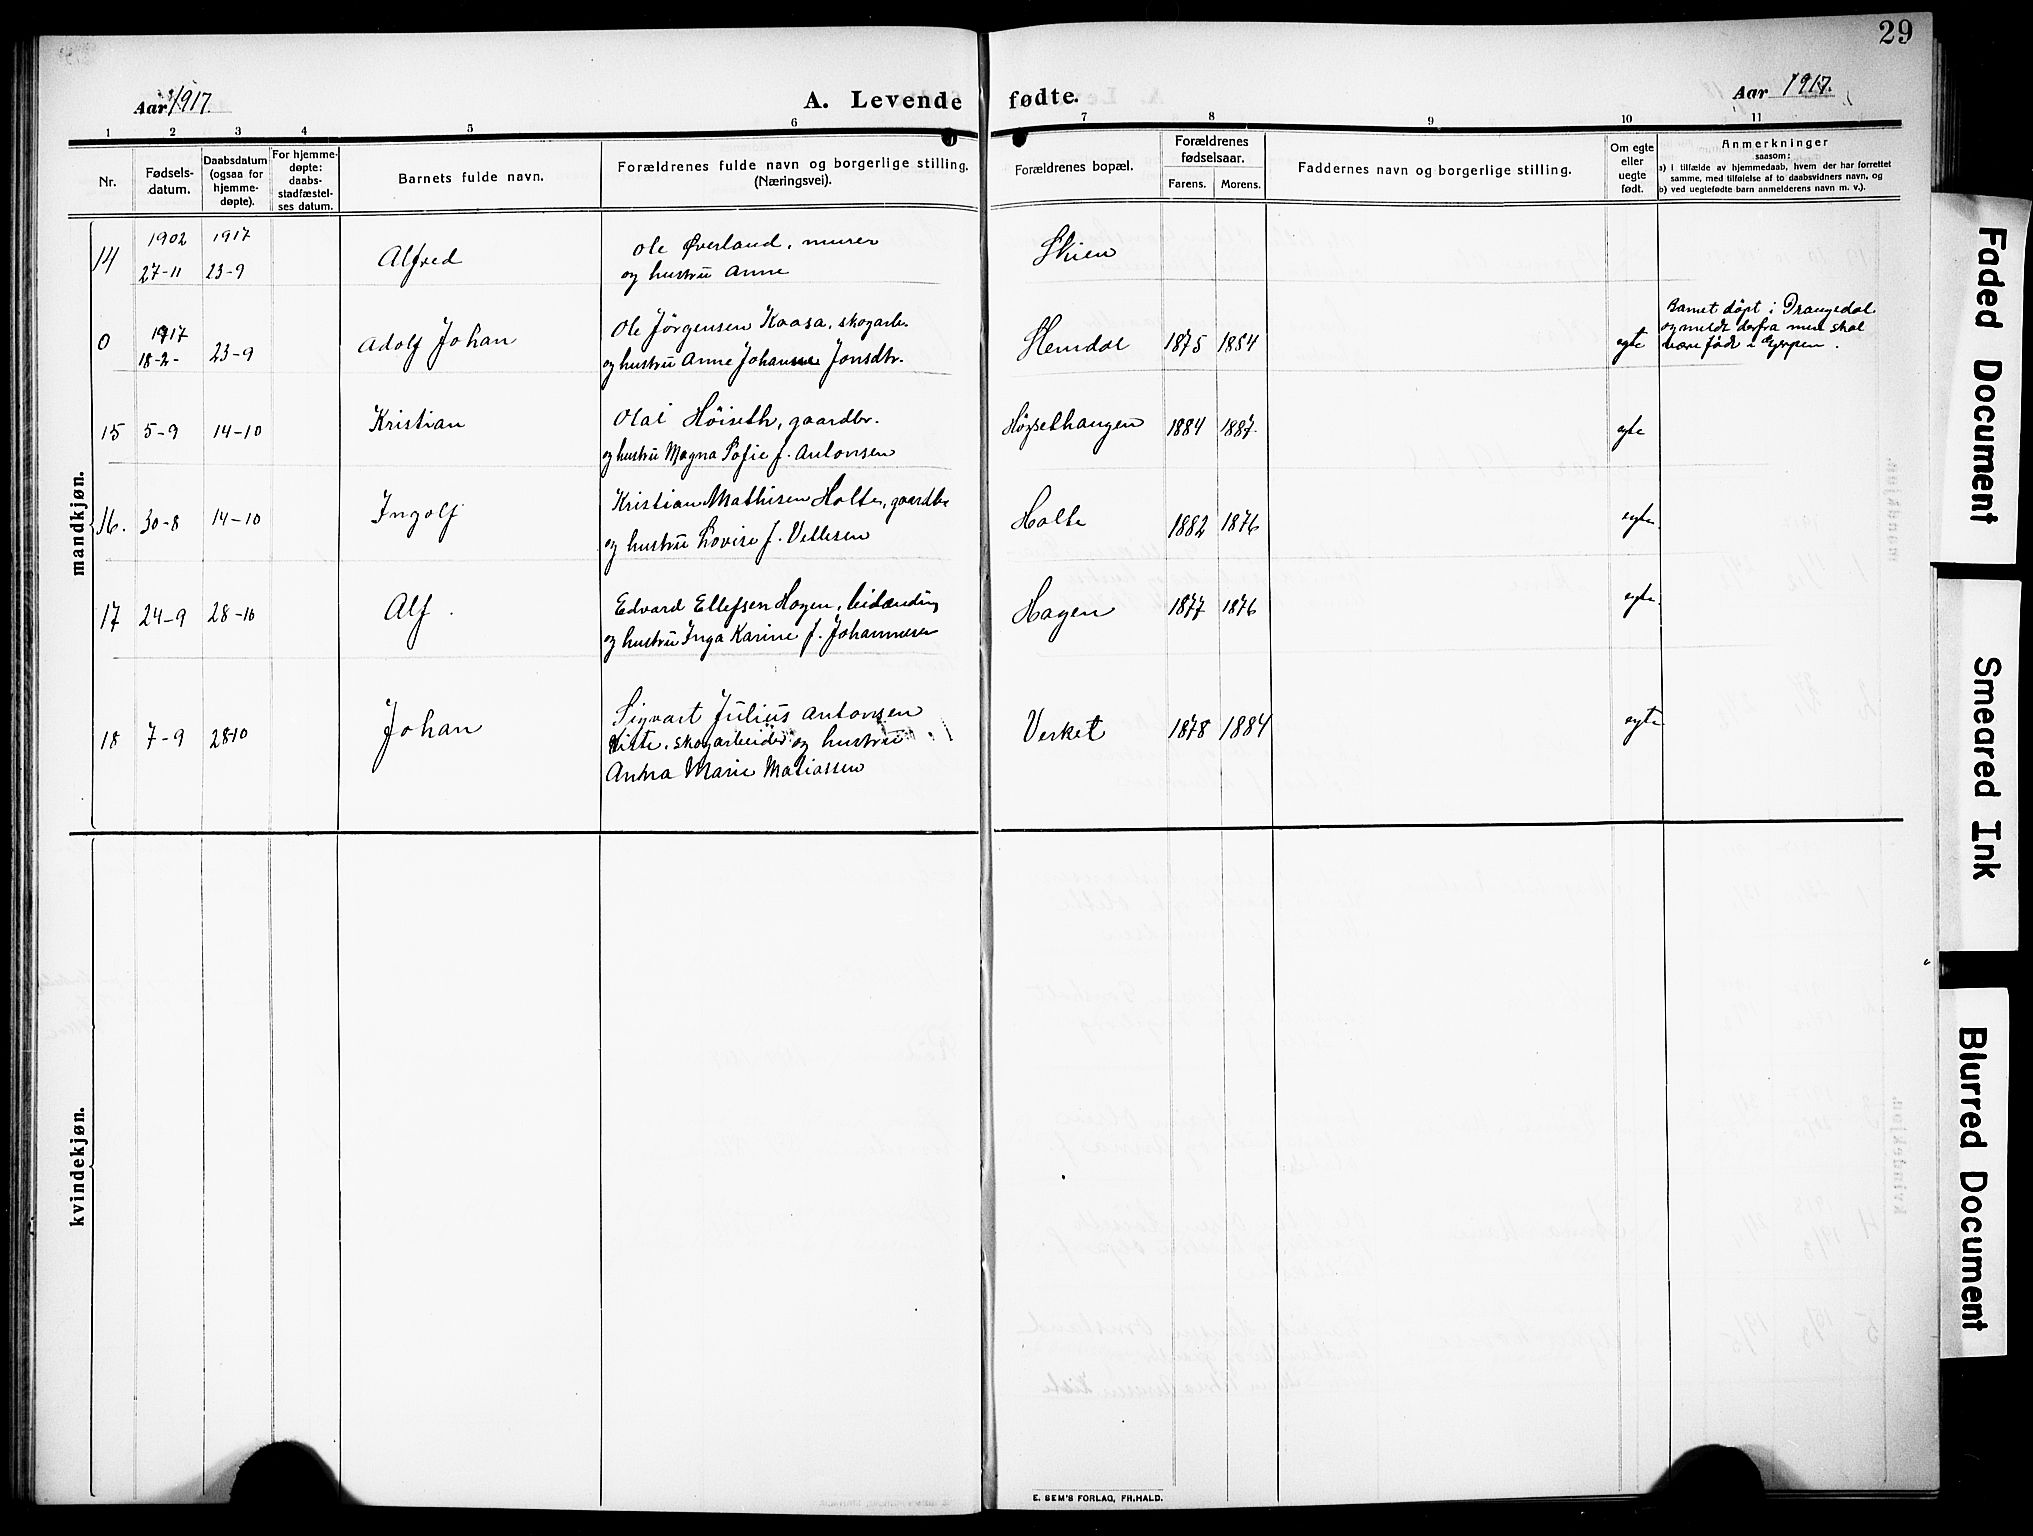 29
Aar 1917.
A. Levende fødte.
Aar 1917.
1 2 3 4 5 6 7 8 9 10 11
Nr.
Fødsels-
datum.
Daabsdatum
(ogsaa for
hjemme-
døpte).
For hjemme-
døpte:
daabs-
stadfæstel-
ses datum.
Barnets fulde navn.
Forældrenes fulde navn og borgerlige stilling.
(Næringsvei).
Forældrenes bopæl.
Forældrenes
fødselsaar.
Farens. Morens.
Faddernes navn og borgerlige stilling.
Om egte
eller
uegte
født.
Anmerkninger
saasom:
a) i tilfælde av hjemmedaab, hvem der har forrettet
samme, med tilføielse af to daabsvidners navn, og
b) ved uegtefødte barn anmelderens navn m. v.).
mandkjøn.
14 1902 27-11 1917 23-9 Alfred Ole Øverland, murer Skien
og hustru Anne
0 1917 18-2- 23-9 Adolf Johan Ole Jørgensen Kaasa, skogarb. Hemdal 1875 1884 egte
og hustru Anne Johanne Jonsdtr.
Barnet døpt i Drangedal
og meldt derfra men skal
være født i Gjerpen.
15 5-9 14-10 Kristian Olai Höiseth, gaardbr. Høysethaugen 1884 1887. egte
og hustru Magna Sofie f. Antonsen
16. 30-8 14-10 Ingolf Kristian Mathisen Holte, gaardbr Holte 1882 1876 egte
og hustru Lovise f. Vellesen
17 24-9 28-10 Alf. Edvard Ellefsen Hagen, Hagen 1877 1876 egte.
og hustru Inga Karine f. Johannesen
18 7-9 28-10 Johan Sigvart Julius Antonsen Verket 1878 1884 egte
skogarbeider og hustru
Anna Marie Matiassen
kvindekjøn.
E. SEM'S FORLAG, FR.HALD.
Faded Document
Smeared Ink
Blurred Document